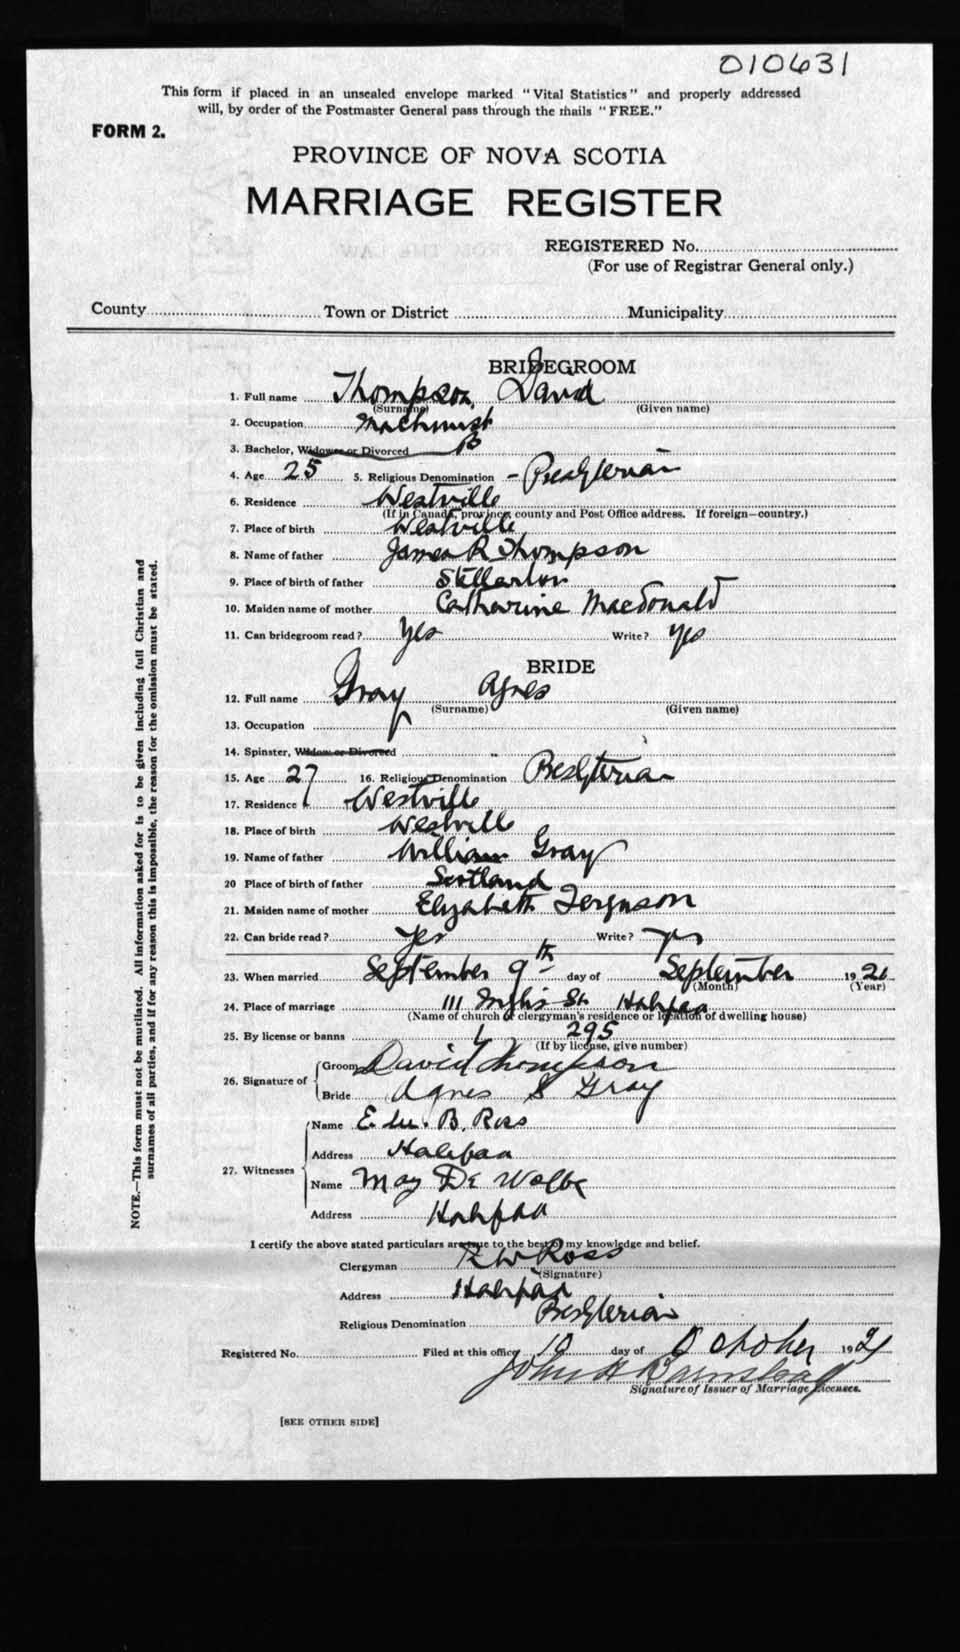 010631
This form if placed in an unsealed envelope marked "Vital Statistics" and properly addressed
will, by order of the Postmaster General pass through the mails "FREE."
FORM 2.
PROVINCE OF NOVA SCOTIA
MARRIAGE REGISTER
REGISTERED No.
(For use of Registrar General only.)
County Town or District Municipality
BRIDEGROOM
1. Full name Thompson, David
(Surname) (Given name)
2. Occupation Machinist
3. Bachelor, Widower or Divorced B
4. Age 25 5. Religious Denomination - Presbyterian
6. Residence Westville
(If in Canada, province, county and Post Office address. If foreign—country.)
7. Place of birth Westville
8. Name of father James R Thompson
9. Place of birth of father Stellarton
10. Maiden name of mother Catherine Macdonald
11. Can bridegroom read? Yes Write? Yes
BRIDE
12. Full name Gray Agnes
(Surname) (Given name)
13. Occupation
14. Spinster, Widow or Divorced
15. Age 27 16. Religious Denomination Presbyterian
17. Residence Westville
18. Place of birth Westville
19. Name of father William Gray
20 Place of birth of father Scotland
21. Maiden name of mother Elizabeth Ferguson
22. Can bride read? Yes Write? Yes
23. When married September 9th day of September 192
(Month) (Year)
24. Place of marriage 111 Inglis St Halifax
(Name of church or clergyman's residence or location of dwelling house)
25. By license or banns L 295
(If by license, give number)
26. Signature of Groom David Thompson
Bride Agnes S Gray
27. Witnesses Name B. Ross
Address Halifax
Name May De Wolfe
Address Halifax
I certify the above stated particulars are true to the best of my knowledge and belief.
Clergyman Ross
(Signature)
Address Halifax
Religious Denomination Presbyterian
Registered No. Filed at this office 10 day of October 1921
John H Barnstead
Signature of Issuer of Marriage Licenses.
[SEE OTHER SIDE]
NOTE.—This form must not be mutilated. All information asked for is to be given including full Christian and
surnames of all parties, and if for any reason this is impossible, the reason for the omission must be stated.